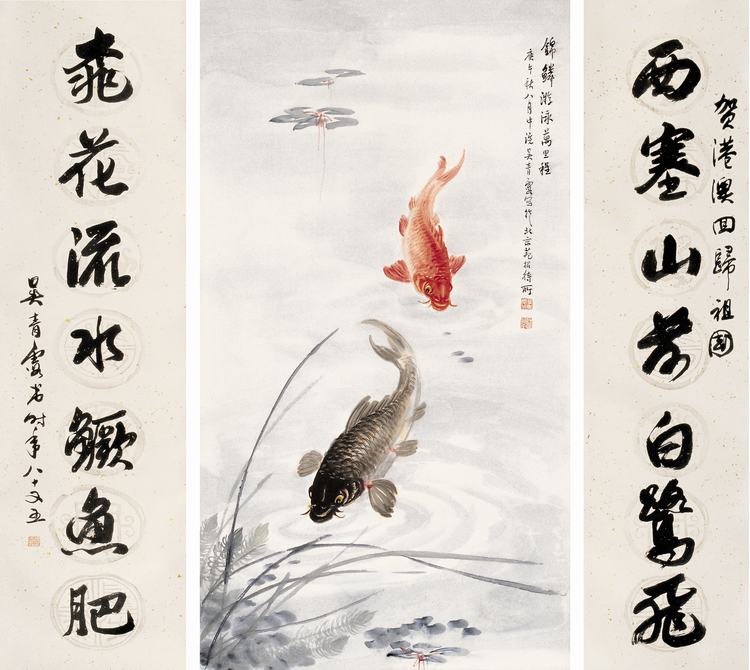 贺港澳回歸祖國
西塞山前白鷺飛
錦鱗游泳萬里程
庚午秋八月中浣吳青霞写於北京招待所
桃花流水鱖魚肥
吳青霞书时年八十又五